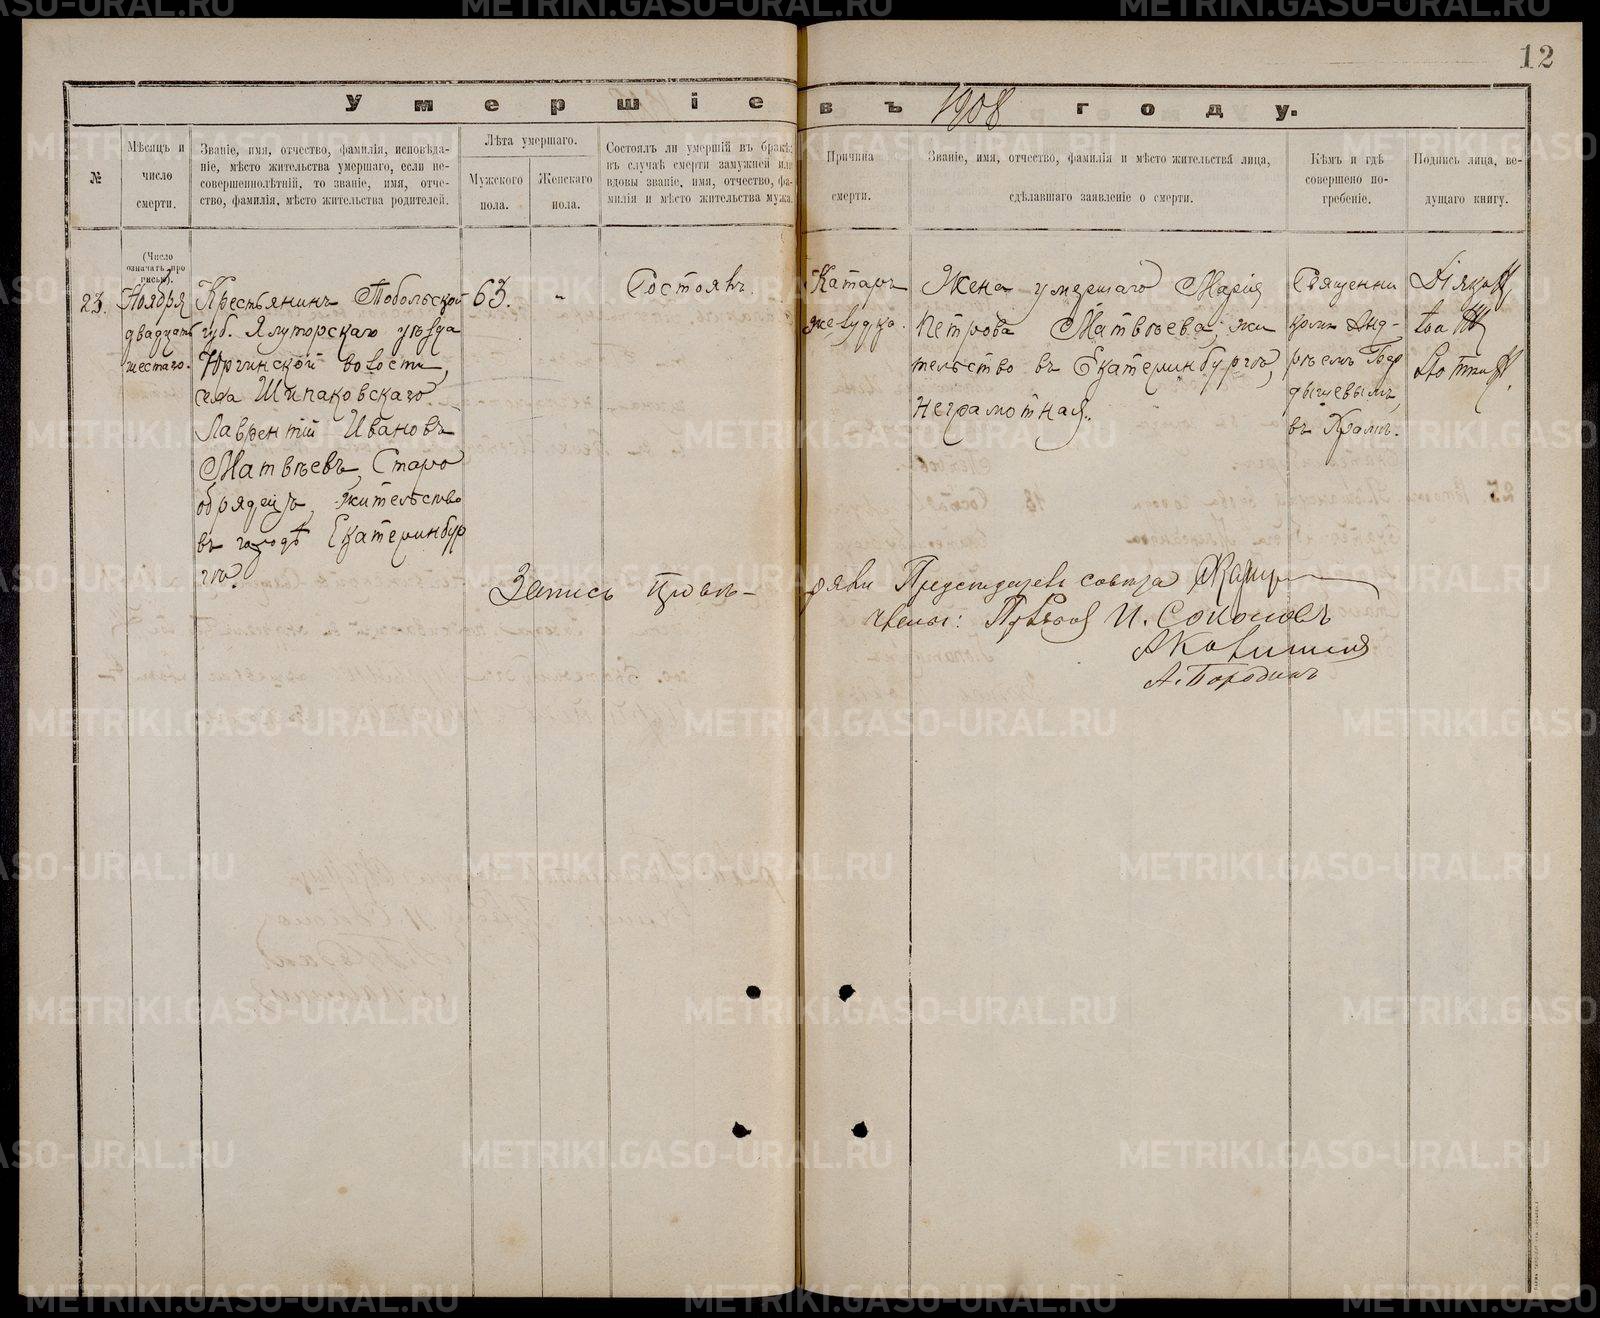 12
Умершіе въ 1908 году.
№
Мѣсяцъ и
число
смерти.
Званіе, имя, отчество, фамилія, исповѣда-
ніе, мѣсто жительства умершаго, если не-
совершеннолѣтній, то званіе, имя, отче-
ство, фамилія, мѣсто жительства родителей.
Лѣта умершаго.
Мужского
пола.
Женскаго
пола.
Состоялъ ли умершій въ бракѣ;
въ случаѣ смерти замужней или
вдовы званіе, имя, отчество, фа-
милія и мѣсто жительства мужа.
Причина
смерти.
Званіе, имя, отчество, фамилія и мѣсто жительства лица,
сдѣлавшаго заявленіе о смерти.
Кѣмъ и гдѣ
совершено по-
гребеніе.
Подпись лица, ве-
дущаго книгу.
(Число
означать про
писью).
23.
Ноября
двадцать
шестаго.
Крестьянинъ Тобольской
губ. Ялуторскаго уѣзда
Юргинской волости,
села Шипаковскаго
Лаврентій Ивановъ
Матвѣевъ, Старо
обрядецъ, жительство
въ городѣ Екатеринбур
гѣ.
63.
"
Состоялъ.
Катаръ
желудка.
Жена умершаго Марія
Петрова Матвѣева, жи
тельство въ Екатеринбургѣ,
неграмотная.
Священни
комъ Анд-
реемъ Бер
дышевымъ,
въ Храмѣ.
Запись провѣ-
ряли Предсѣдатель совѣта
Члены: И. Соколовъ
А. Бородинъ
METRIKI.GASO-URAL.RU